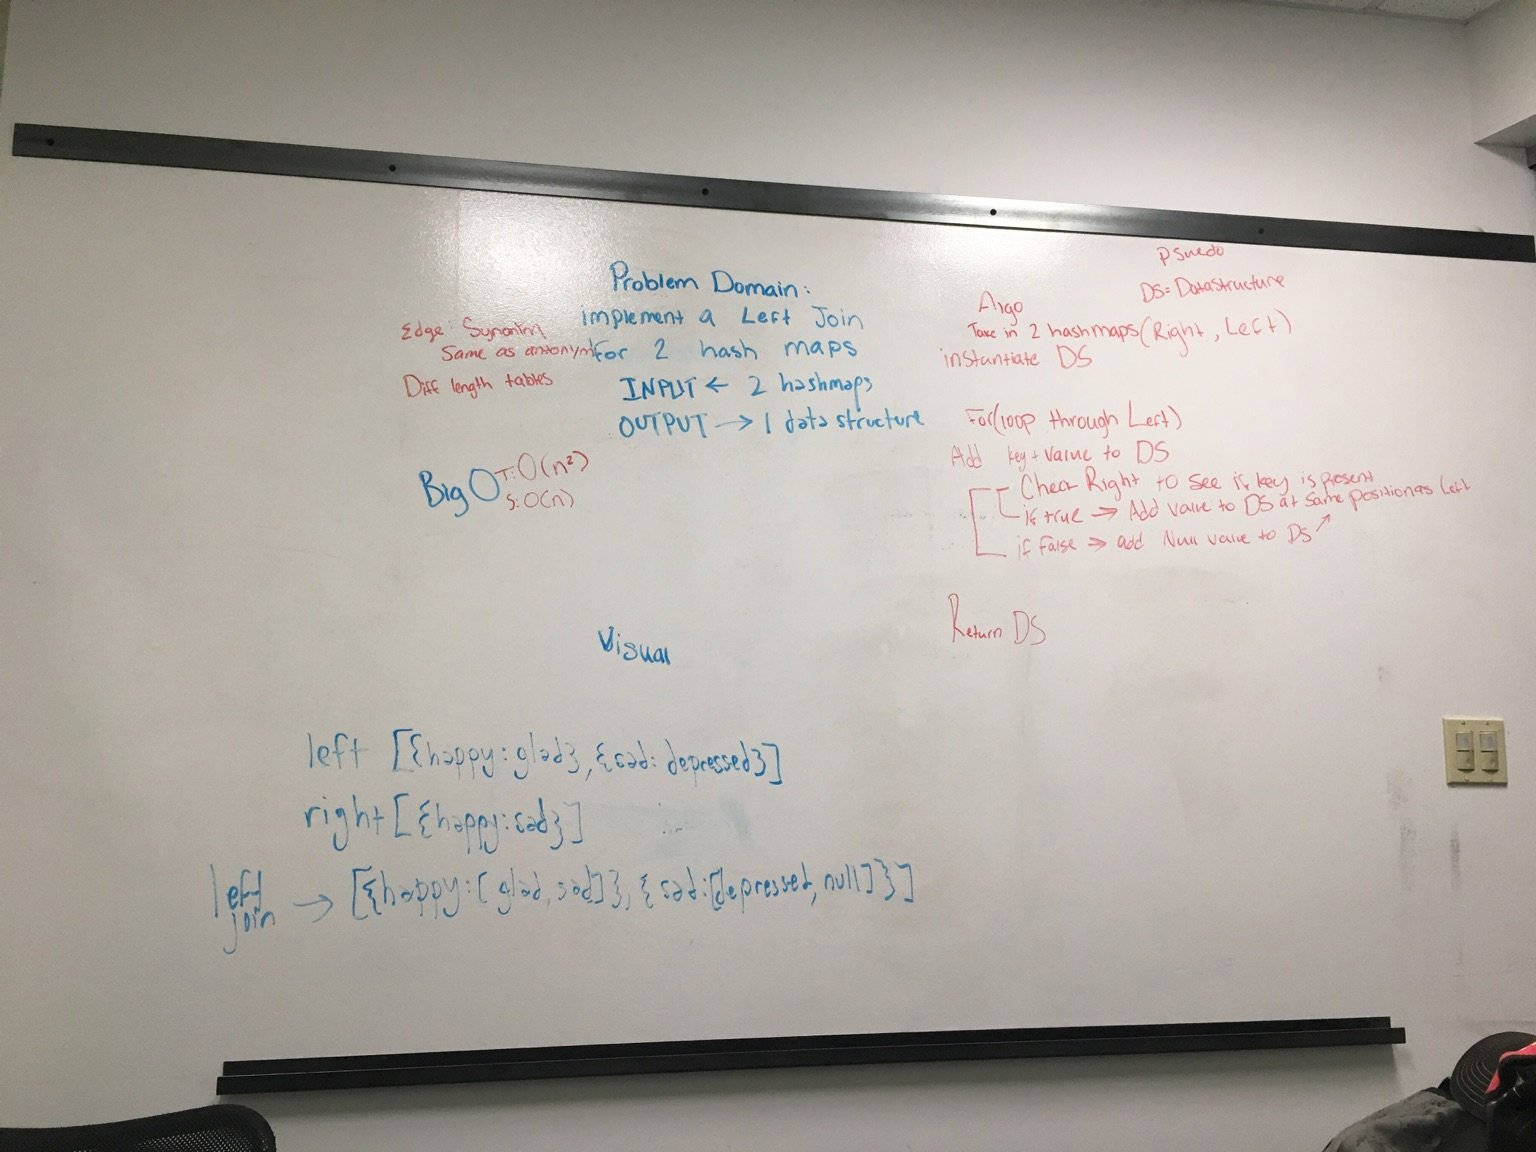 Problem Domain:
implement a Left Join
for 2 hash maps
INPUT ← 2 hashmaps
OUTPUT → 1 data structure
Edge: Synonim
Same as antonym
Diff length tables
Big O T: O(n²)
S: O(n)
psuedo
DS = Datastructure
Algo
Take in 2 hashmaps (Right, Left)
instantiate DS
For(loop through Left)
Add key + value to DS
Check Right to see if key is present
if true → Add value to DS at same position as Left
if False → add Null value to DS ↗
Return DS
Visual
left [{happy: glad}, {sad: depressed}]
right [{happy: sad}]
left join → [{happy: [glad, sad]}, {sad: [depressed, null]}]